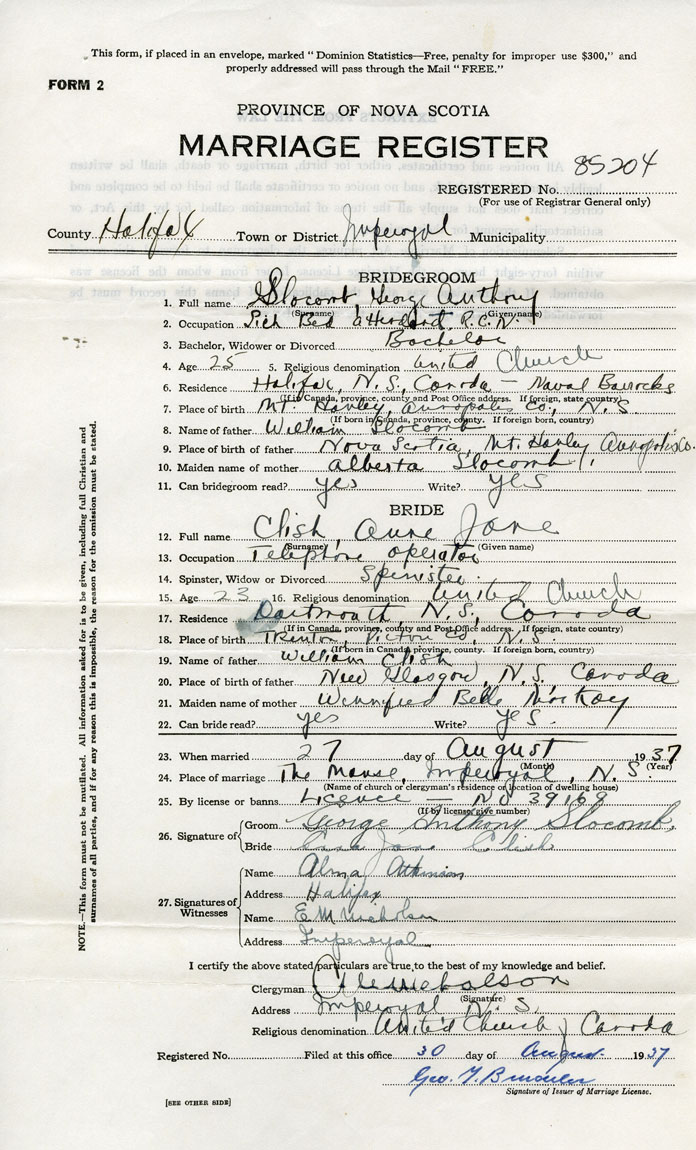 This form, if placed in an envelope, marked "Dominion Statistics—Free, penalty for improper use $300," and
properly addressed will pass through the Mail "FREE."
FORM 2
PROVINCE OF NOVA SCOTIA
MARRIAGE REGISTER
85204
REGISTERED No.
(For use of Registrar General only)
County Halifax Town or District Imperoyal Municipality
BRIDEGROOM
1. Full name Slocomb, George Anthony
(Surname) (Given name)
2. Occupation Sick Bed Attendant R.C.N.
3. Bachelor, Widower or Divorced Bachelor
4. Age 25 5. Religious denomination United Church
6. Residence Halifax, N.S., Canada — Naval Barracks
(If in Canada, province, county and Post Office address. If foreign, state country)
7. Place of birth Mt. Hanley, Annapolis Co., N.S.
(If born in Canada, province, county. If foreign born, country)
8. Name of father William Slocomb
9. Place of birth of father Nova Scotia, Mt. Hanley Annapolis Co.
10. Maiden name of mother Alberta Slocomb
11. Can bridegroom read? yes Write? yes
BRIDE
12. Full name Clish, Anne Jane
(Surname) (Given name)
13. Occupation Telephone operator
14. Spinster, Widow or Divorced Spinster
15. Age 23 16. Religious denomination United Church
17. Residence Dartmouth, N.S., Canada
(If in Canada, province, county and Post Office address. If foreign, state country)
18. Place of birth Trenton, Pictou Co., N.S.
(If born in Canada, province, county. If foreign born, country)
19. Name of father William Clish
20. Place of birth of father New Glasgow, N.S. Canada
21. Maiden name of mother Winnifred Belle MacKay
22. Can bride read? yes Write? yes.
23. When married 27 day of August 1937
(Month) (Year)
24. Place of marriage The Manse, Imperoyal, N.S.
(Name of church or clergyman's residence or location of dwelling house)
25. By license or banns Licence — No 39169
(If by license, give number)
26. Signature of Groom George Anthony Slocomb.
Bride Jane Clish
27. Signatures of Witnesses
Name Alma Atkinson
Address Halifax
Name E M Nicholson
Address Imperoyal
I certify the above stated particulars are true to the best of my knowledge and belief.
Clergyman Nicholson
(Signature)
Address Imperoyal N.S.
Religious denomination United Church of Canada
Registered No. Filed at this office 30 day of August 1937
Geo. T.
Signature of Issuer of Marriage License.
[SEE OTHER SIDE]
NOTE.—This form must not be mutilated. All information asked for is to be given, including full Christian and
surnames of all parties, and if for any reason this is impossible, the reason for the omission must be stated.